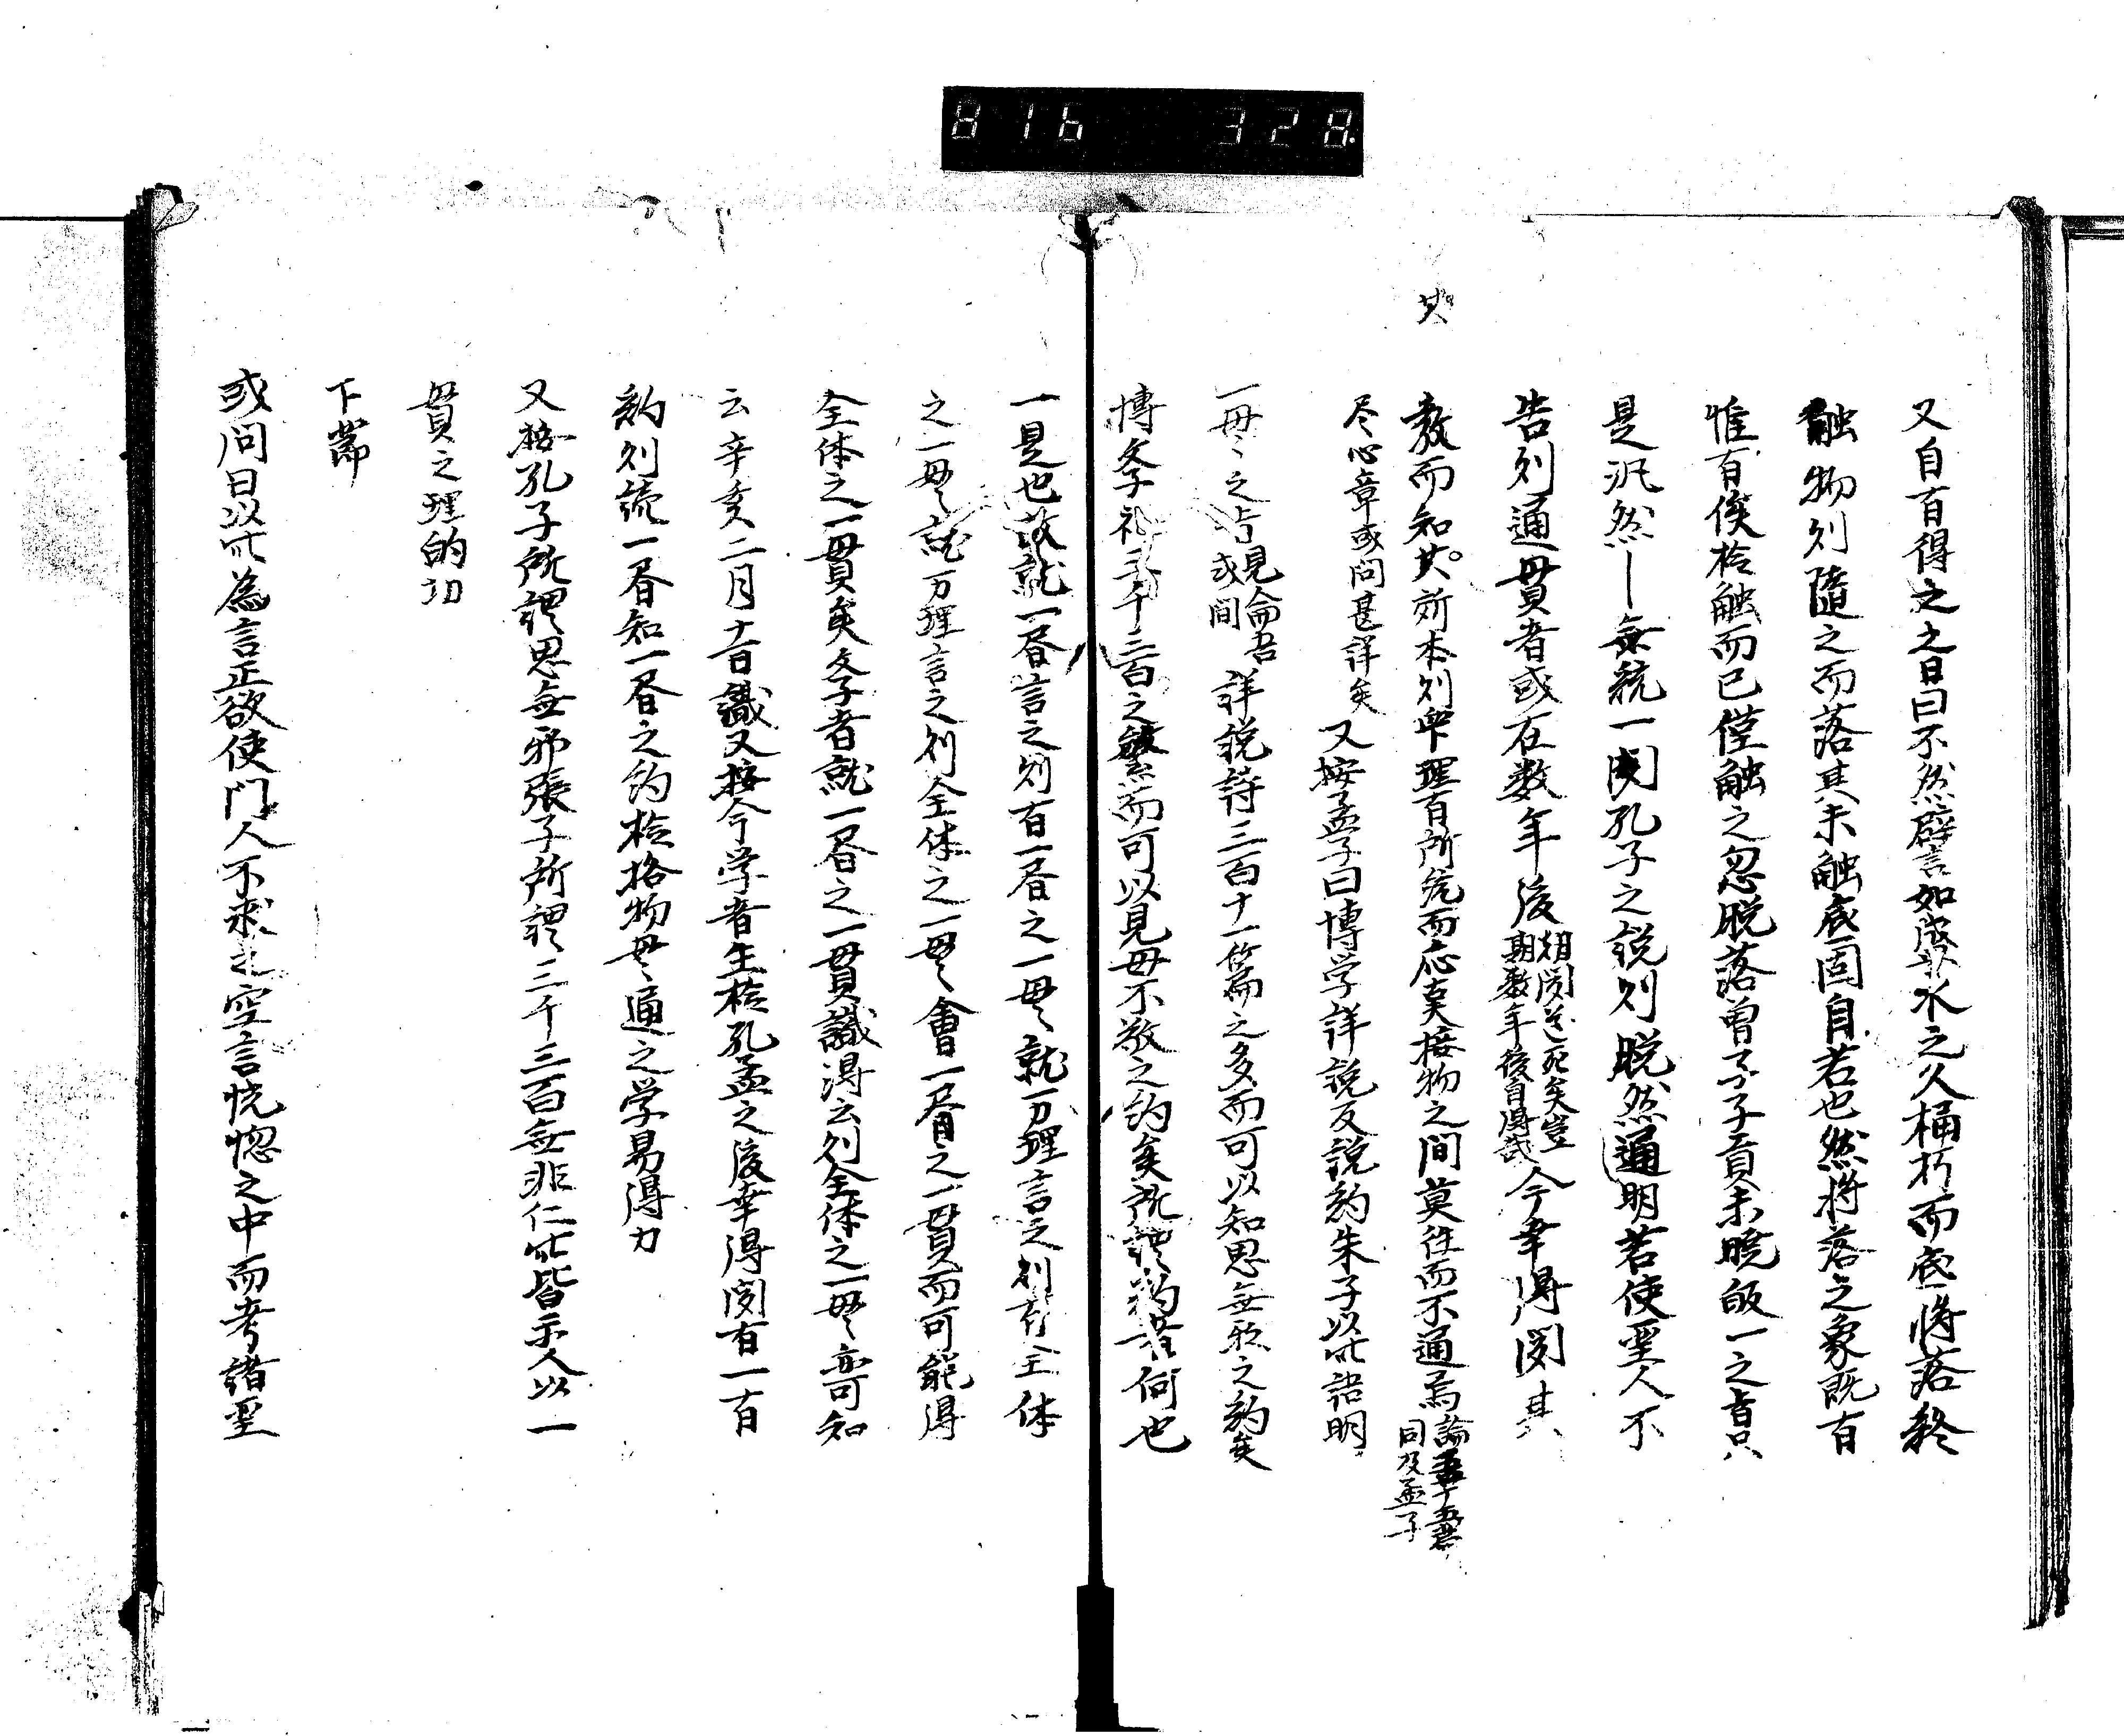 816 328
又自有得之之日曰不然譬言如盛水之久桶朽而底将落終
触物則隨之而落其未触底固自若也然将落之象既有
惟有俟於触而已僅触之忽脱落曽子子貢未暁故一之旨只
是汎然一無統一聞孔子之説則脱然通明若使聖人不
告則通貫者或在数年後朝聞道夕死矣豈期数年後自得哉今幸得聞其
其
教而知其所本則卑理有所統而応事接物之間莫往而不通焉論孟十五巻同及孟子
尽心章或問甚詳矣又按孟子曰博学詳説反説約朱子以此語明
一毋之旨見侖吾或問詳説詩三百十一篇之多而可以知思無邪之約矣
博文礼三千三百之繁而可以見毋不敬之約矣所謂約者何也
一是也故就一㫺言之則有一㫺之一毋就万理言之則有全体
之一毋就万理言之則全体之一毋會一㫺之一貫而可能得
全体之一貫矣学者就一㫺之一貫識得云則全体之一毋亦可知
云辛亥二月十一日識又按今学者生於孔孟之後幸得聞有一有
約則読一㫺知一㫺之約於格物毋通之学易得力
又按孔子所謂思無邪張子所謂三千三百無非仁此皆示人以一
貫之理的切
下節
或問曰以此為言正欲使門人不求之空言恍惚之中而考諸聖